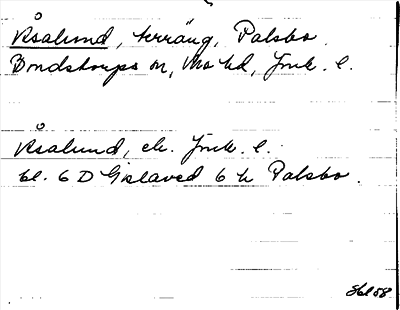 Åsalund, terräng, Palsbo.
Bondstorps sn, Mo hd, Jönk. l.
Åsalund, ek. Jönk. l.
bl. 6 D Gislaved 6 h Palsbo.